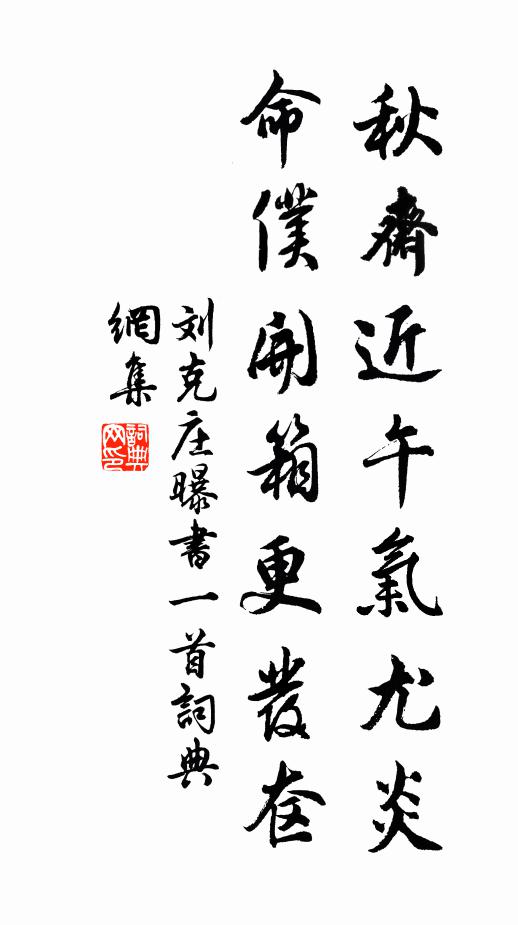 秋齋近午氣尤炎
命僕開箱更發奁
刘克庄曝書一首詞典
網集
詞典网印